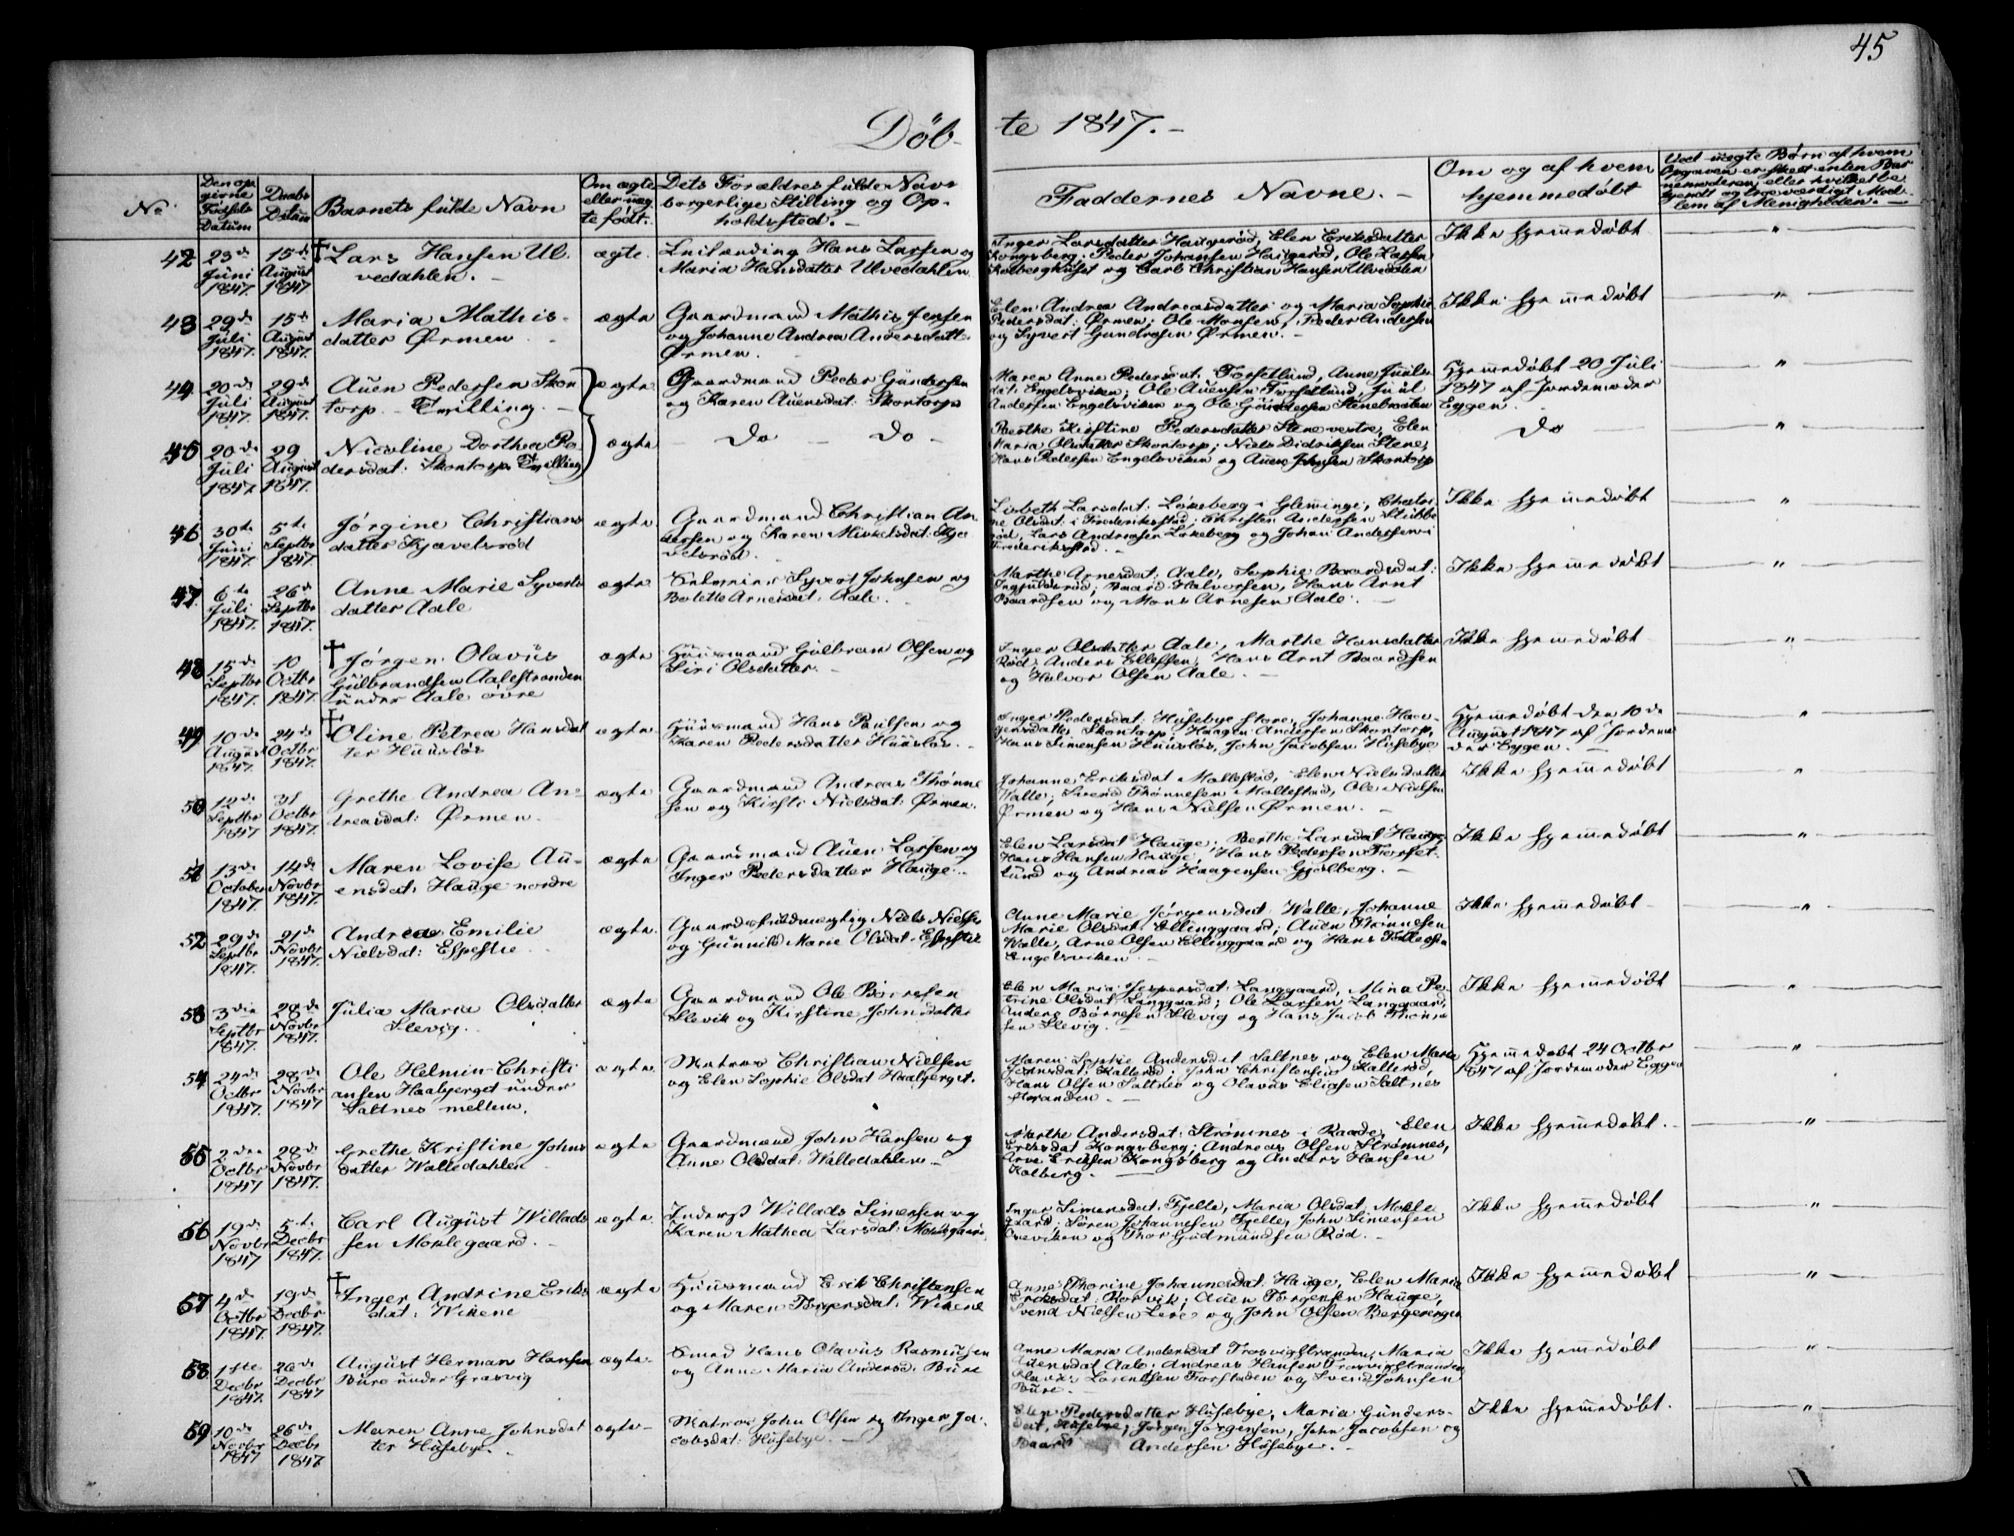 45
Döb-
te 1847.-
No
Den op-
givne
Födsels
Datum
Daabs
Datum
Barnets fulde Navn
Om ægte
eller uæg
te født.
Dets Forældres fulde Navn
borgerlige Stilling og Op-
holdssted.-
Faddernes Navne.-
Om og af hvem
hjemmedøbt
Ved uægte Børn af hvem
Opgaven er skeet enten Bar
nemoderen eller hvilket be
kjendt og troeværdigt Med-
lem af Menigheden.-
42
23de
Juni
1847.
15de
August
1847
† Lars Hansen Ul-
vedahlen.-
ægte.
Hans Larsen og
Maria Hansdatter Ulvedahlen
Inger Larsdatter Haugerød, Elen Eriksdatter
Kongsberg. Peder Johansen Haugerød, Ole Larsen
Kolberghuset og Carl Christian Hansen Ulvedalen
Ikke hjemmedøbt
"
43
29de
Juli
1847.
15de
August
1847.
Maria Mathis-
datter Ørmen
ægte
Gaardmand Mathis Jensen
og Johanne Andrea Andersdatt:
Ørmen.
Elen Andrea Andreasdatter og Maria Sophie
Pedersdat: Ørmen; Ole Monsen, Peder Andersen
og Syvert Gundersen Ørmen.-
Ikke hjemmedøbt
"
44
20de
Juli
1847.
29de
August
1847.
Auen Pedersen Skon
torp - Tvilling.-
ægte
Gaardmand Peder Gundersen
og Karen Auensdat: Skontorp
Maren Anne Pedersdat: Torsetlund, Anne Juuls
dat: Engelsviken; Ole Auensen Torsetlund, Juul
Andersen Engelsviken og Ole Gundersen Stenebraaten
Hjemmedøbt 20 Juli
1847 af Jordemoder
Eggen.
"
45
20de
Juli
1847.
29
August
1847.
Nicoline Dorthea Pe-
dersdat: Skontorp Tvilling
ægte
Do - Do -
Berthe Kirstine Pedersdatter Stene vestre, Elen
Maria Olsdatter Skontorp; Niels Didriksen Stene,
Hans Pedersen Engelsviken og Auen Johnsen Skontorp
Do
"
46
30te
Juni
1847.
5te
Septbr
1847.
Jørgine Christians
datter Kjævelsrød
ægte
Gaardmand Christian An-
dersen og Karen Mikkelsdat: Kjæ
velsrød.
Lisbeth Larsdat: Lökeberg i Glemminge, Chatri
ne Olsdat: i Frederikstad; Christen Andersen Stubbe
rød, Lars Andersen Lökeberg og Johan Andersen i
Frederikstad.-
Ikke hjemmedøbt
"
47
6te
Juli
1847.
26de
Septbr
1847.
Anne Marie Syverts
datter Aale
ægte
Syvert Johnsen og
Bolette Arnesdat: Aale.
Marthe Arnesdat: Aale, Sophie Baardsdat:
Ingjulsrød; Baard Halvorsen, Hans Arnt
Baardsen og Mons Arnesen Aale.-
Ikke hjemmedøbt
"
48
15de
Septbr
1847.
10
Octbr
1847.
† Jørgen Olavus
Gulbrandsen Aalestranden
under Aale øvre
ægte
Huusmand Gulbran Olsen og
Siri Olsdatter.-
Inger Olsdatter Aale, Marthe Hansdatter
Rød; Anders Ellefsen, Hans Arnt Baardsen
og Halvor Olsen Aale.-
Ikke hjemmedøbt
"
49
10de
August
1847.
24de
Octbr
1847.
† Oline Petrea Hansdat
ter Huuslös
ægte.
Huusmand Hans Paulsen og
Karen Pedersdatter Huuslös.-
Inger Pedersdat: Husebye store, Johanne Haa-
gensdatter Skontorp; Haagen Andersen Skontorp,
Hans Simensen Huuslös, John Jacobsen Husebye
Hjemmedøbt den 10de
August 1847 af Jordemo
der Eggen.-
"
50
12de
Septbr
1847
31
Octbr
1847.
Grethe Andrea An-
dreasdat: Ørmen.
ægte
Gaardmand Andreas Thønne
sen og Kirsti Nielsdat: Ørmen.
Johanne Eriksdat Mallestad, Elen Nielsdatter
Walle; Svend Thønnesen Mallestad, Ole Nielsen
Ørmen og Hans Nielsen Ørmen.-
Ikke hjemmedøbt
"
51
13de
October
1847.
14de
Novbr
1847.
Maren Lovise Au-
ensdat: Hauge nordre
ægte
Gaardmand Auen Larsen og
Inger Pedersdatter Hauge.-
Elen Larsdat Hauge; Berthe Larsdat Hauge
Hans Hansen Hauge, Hans Pedersen Torset-
lund og Andreas Haagensen Gjølberg.-
Ikke hjemmedøbt
"
52
29de
Septbr
1847.
21de
Novbr
1847.
Andrea Emilie
Nielsdat: Espestie
ægte.
Gaardsfuldmægtig Niels Nielsen
og Gunnild Marie Olsdat: Espestie
Anne Marie Jørgensdat: Walle, Johanne
Marie Olsdat Ellinggaard; Auen Thønnesen
Walle, Arne Olsen Ellinggaard og Hans
Engelsviken.-
Ikke hjemmedøbt
"
53
3die
Septbr
1847.
28de
Novbr
1847.
Julia Maria Olsdatter
Slevig.
ægte
Gaardmand Ole Börresen
Slevik og Kirstine Johnsdatter
Elen Maria Jespersdat: Langgaard, Mina Pe-
trine Olsdat Langgaard; Ole Larsen Langgaard,
Anders Börresen Slevig og Hans Jacob Thønne
sen Slevig.-
Ikke hjemmedøbt
"
54
24de
Octbr
1847.
28de
Novbr
1847
Ole Helmin Christi
ansen Haabjerget under
Saltnes mellem.
ægte
Matros Christian Nielsen
og Elen Sophie Olsdat Haabjerget.
Maren Sophie Andersdat Saltnes og Elen Maria
Johnsdat: Kallerød; John Christensen Kallerød,
Hans Olsen Saltnes og Olavus Eliasen Saltnes
stranden.-
Hjemmedøbt 24 Octbr
1847 af Jordemoder Eggen
"
55
2den
Octbr
1847
28de
Novbr
1847.
Grethe Kristine Johns
datter Walledahlen
ægte
Gaardmand John Hansen og
Anne Olsdat: Walledahlen.-
Marthe Andersdat: Strömnes i Raade, Elen
Eriksdat Kongsberg; Andreas Olsen Strömnes,
Arve Eriksen Kongsberg og Anders Hansen
Kolberg.-
Ikke hjemmedøbt.
"
56
19de
Novbr
1847
5te
Decbr
1847.
Carl August Willads
sen Moklegaard.-
ægte.
Inderst Willads Simensen og
Karen Mathea Larsdat: Moklegaard.
Inger Simensdat: Fjelle, Maria Olsdat: Mokle
gaard; Sören Johannesen Fjelle, John Simensen
Oreviken og Thor Gudmundsen Röd.-
Ikke hjemmedøbt
"
57
4de
Octbr
1847.
19de
Decbr
1847.
† Inger Andrine Eriks
dat: Wikene
ægte
Huusmand Erik Christensen
og Maren Torgersdat: Wikene
Anne Thorine Johannesdat: Hauge, Elen Maria
Eriksdat: Rosvik; Auen Torgersen Hauge,
Svend Nielsen Lere og John Olsen Bergeringen
Ikke hjemmedøbt
"
58
1ste
Decbr
1847.
26de
Decbr
1847
August Herman Hansen
Bure under Grasvig
ægte.
Smed Hans Olavus Rasmusen
og Anne Maria Andersd: Bure
Anne Maria Andersdat Trosvigstranden, Maria
Auensdat Aale; Andreas Hansen Trosvigstranden,
Olavus Lorentsen Forstaden og Svend Johnsen
Bure.-
Ikke hjemmedøbt
"
59
10de
Novbr
1847
26de
Decbr
1847
Maren Anne Johnsdat
ter Husebye.
ægte
Matros John Olsen og Inger Ja-
cobsdat: Husebye.-
Elen Pedersdatter Husebye, Maria Gunders-
dat: Husebye; Jørgen Jørgensen, John Jacobsen og
Baard Andersen Husebye.-
Ikke hjemmedøbt.
"